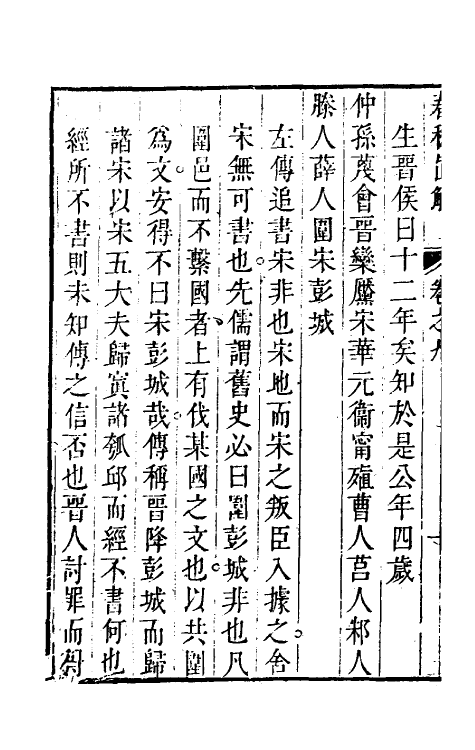 生晉侯曰十二年矣知於是公年四歲
仲孫蔑會晉欒黶宋華元衞甯殖曹人莒人邾人
滕人薛人圍宋彭城
左傳追書宋非也宋地而宋之叛臣入據之舍
宋無可書也先儒謂舊史必曰圍彭城非也凡
圍邑而不繫國者上有伐某國之文也以共圍
爲文安得不曰宋彭城哉傳稱晉降彭城而歸
諸宋以宋五大夫歸寘諸瓠邱而經不書何也
經所不書則未知傳之信否也晉人討罪而得